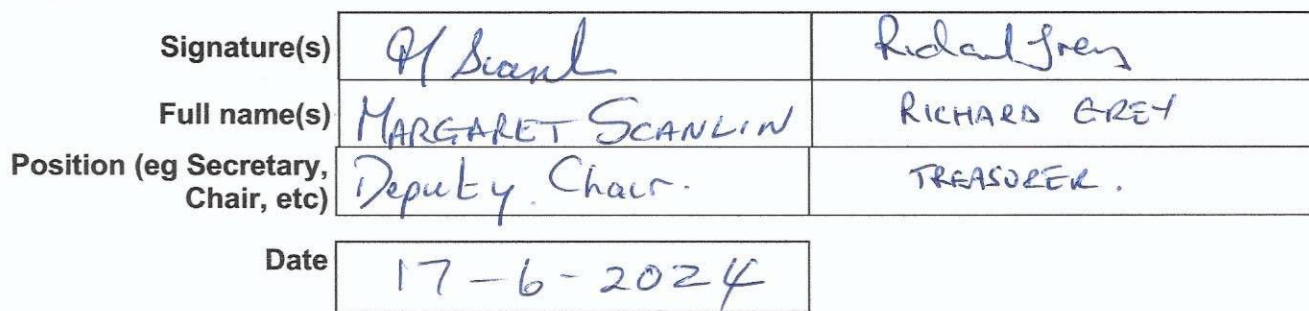 Signature(s) Richard Grey
Full name(s) MARGARET SCANLIN RICHARD GREY
Position (eg Secretary, Deputy Chair. TREASURER.
Chair, etc)
Date 17-6-2024